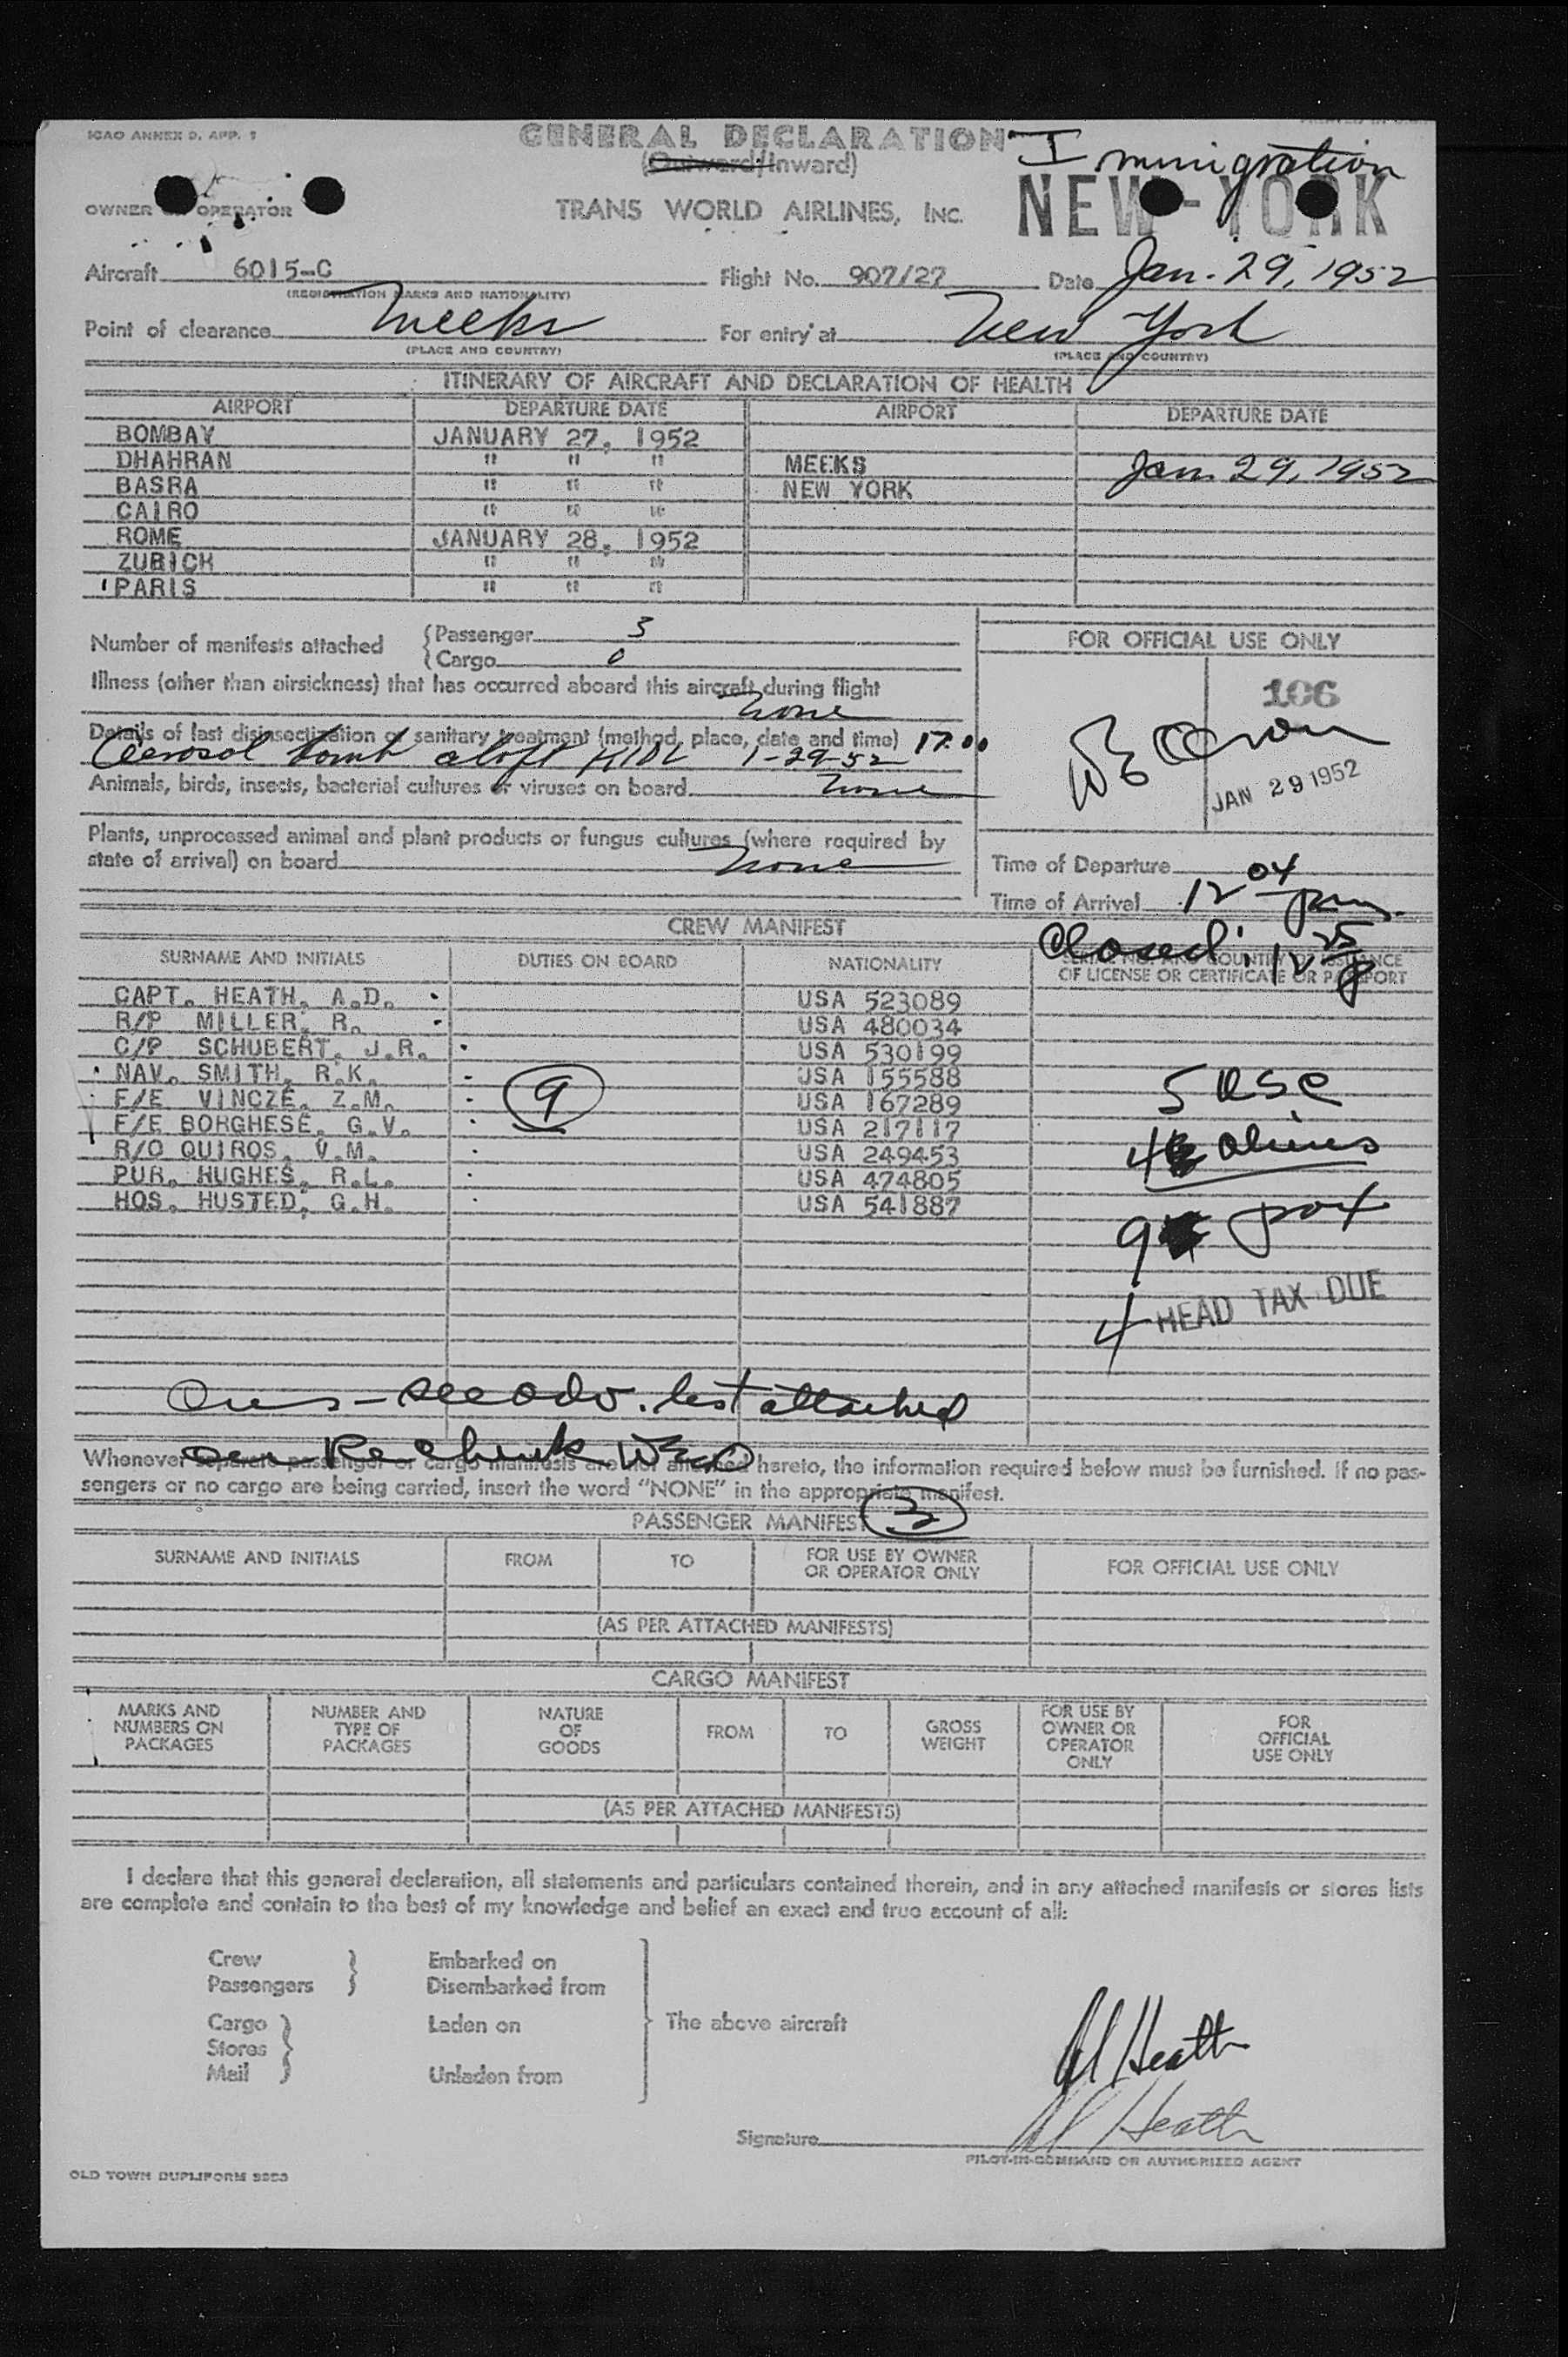 ICAO ANNEX 9. APP. 1
GENERAL DECLARATION
(Outward/Inward)
Immigration
NEW-YORK
OWNER OR OPERATOR
TRANS WORLD AIRLINES, INC.
Aircraft 6015-C Flight No. 907/27 Date Jan. 29, 1952
(REGISTRATION MARKS AND NATIONALITY)
Point of clearance Meeks For entry at New York
(PLACE AND COUNTRY) (PLACE AND COUNTRY)
ITINERARY OF AIRCRAFT AND DECLARATION OF HEALTH
AIRPORT DEPARTURE DATE AIRPORT DEPARTURE DATE
BOMBAY JANUARY 27, 1952
DHAHRAN " " " MEEKS Jan. 29, 1952
BASRA " " " NEW YORK
CAIRO " " "
ROME JANUARY 28, 1952
ZURICH " " "
PARIS " " "
Number of manifests attached
Passenger 3
Cargo 0
FOR OFFICIAL USE ONLY
Illness (other than airsickness) that has occurred aboard this aircraft during flight
None
106
Details of last disinsectization or sanitary treatment (method, place, date and time) 17:00
Aerosol bomb aloft 1-29-52
Animals, birds, insects, bacterial cultures or viruses on board None
JAN 29 1952
Plants, unprocessed animal and plant products or fungus cultures (where required by
state of arrival) on board None
Time of Departure
Time of Arrival 12 04 pm
CREW MANIFEST
Closed 12 25
SURNAME AND INITIALS DUTIES ON BOARD NATIONALITY SERIAL NO. AND COUNTRY OF ISSUANCE
OF LICENSE OR CERTIFICATE OR PASSPORT
CAPT. HEATH, A.D. USA 523089
R/P MILLER, R. USA 480034
C/P SCHUBERT, J.R. USA 530199
NAV. SMITH, R.K. USA 155588
F/E VINCZE, Z.M. USA 167289
F/E BORGHESE, G.V. USA 217117
R/O QUIROS, V.M. USA 249453
PUR. HUGHES, R.L. USA 474805
HOS. HUSTED, G.H. USA 541887
9
5 USC
4 aliens
9 pax
4 HEAD TAX DUE
see adv. list attached
Whenever separate passenger or cargo manifests are not attached hereto, the information required below must be furnished. If no pas-
sengers or no cargo are being carried, insert the word "NONE" in the appropriate manifest.
PASSENGER MANIFEST 3
SURNAME AND INITIALS FROM TO FOR USE BY OWNER OR OPERATOR ONLY FOR OFFICIAL USE ONLY
(AS PER ATTACHED MANIFESTS)
CARGO MANIFEST
MARKS AND NUMBERS ON PACKAGES NUMBER AND TYPE OF PACKAGES NATURE OF GOODS FROM TO GROSS WEIGHT FOR USE BY OWNER OR OPERATOR ONLY FOR OFFICIAL USE ONLY
(AS PER ATTACHED MANIFESTS)
I declare that this general declaration, all statements and particulars contained therein, and in any attached manifests or stores lists
are complete and contain to the best of my knowledge and belief an exact and true account of all:
Crew Embarked on
Passengers Disembarked from
Cargo Laden on The above aircraft
Stores
Mail Unladen from
Al Heath
Signature Al Heath
PILOT-IN-COMMAND OR AUTHORIZED AGENT
OLD TOWN DUPLIFORM